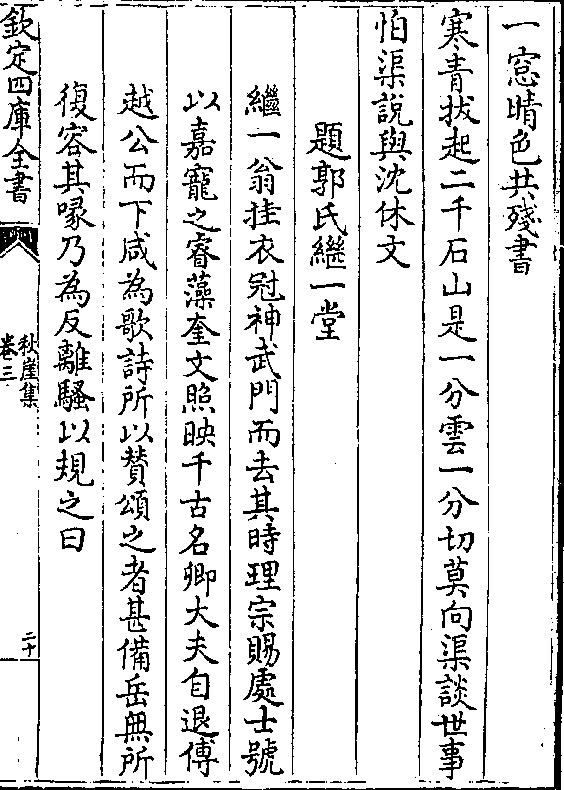 一窓晴色共殘書
寒青拔起二千石山是一分雲一分切莫向渠談世事
怕渠說與沈休文
題郭氏繼一堂
繼一翁挂衣冠神武門而去其時理宗賜處士號
以嘉寵之睿藻奎文照映千古名卿大夫自退傅
越公而下咸為歌詩所以贊頌之者甚備岳無所
復容其喙乃為反離騷以規之曰
欽定四庫全書
秋崖集
卷三
二十